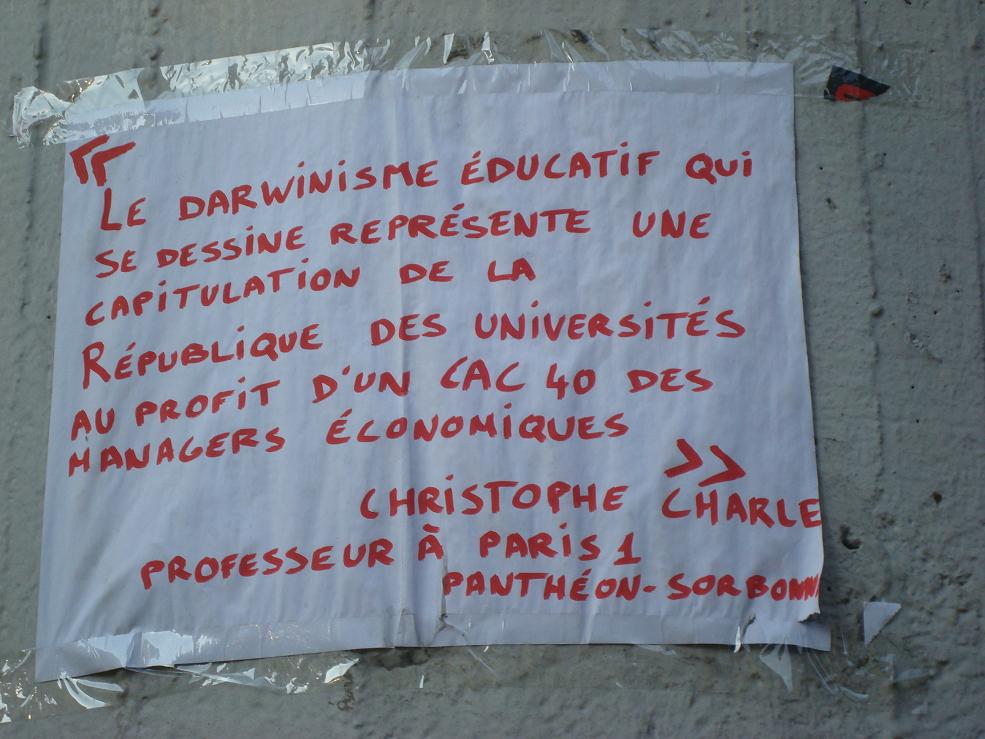 « LE DARWINISME ÉDUCATIF QUI
SE DESSINE REPRÉSENTE UNE
CAPITULATION DE LA
RÉPUBLIQUE DES UNIVERSITÉS
AU PROFIT D'UN CAC 40 DES
MANAGERS ÉCONOMIQUES »
CHRISTOPHE CHARLE
PROFESSEUR À PARIS 1
PANTHÉON-SORBONN